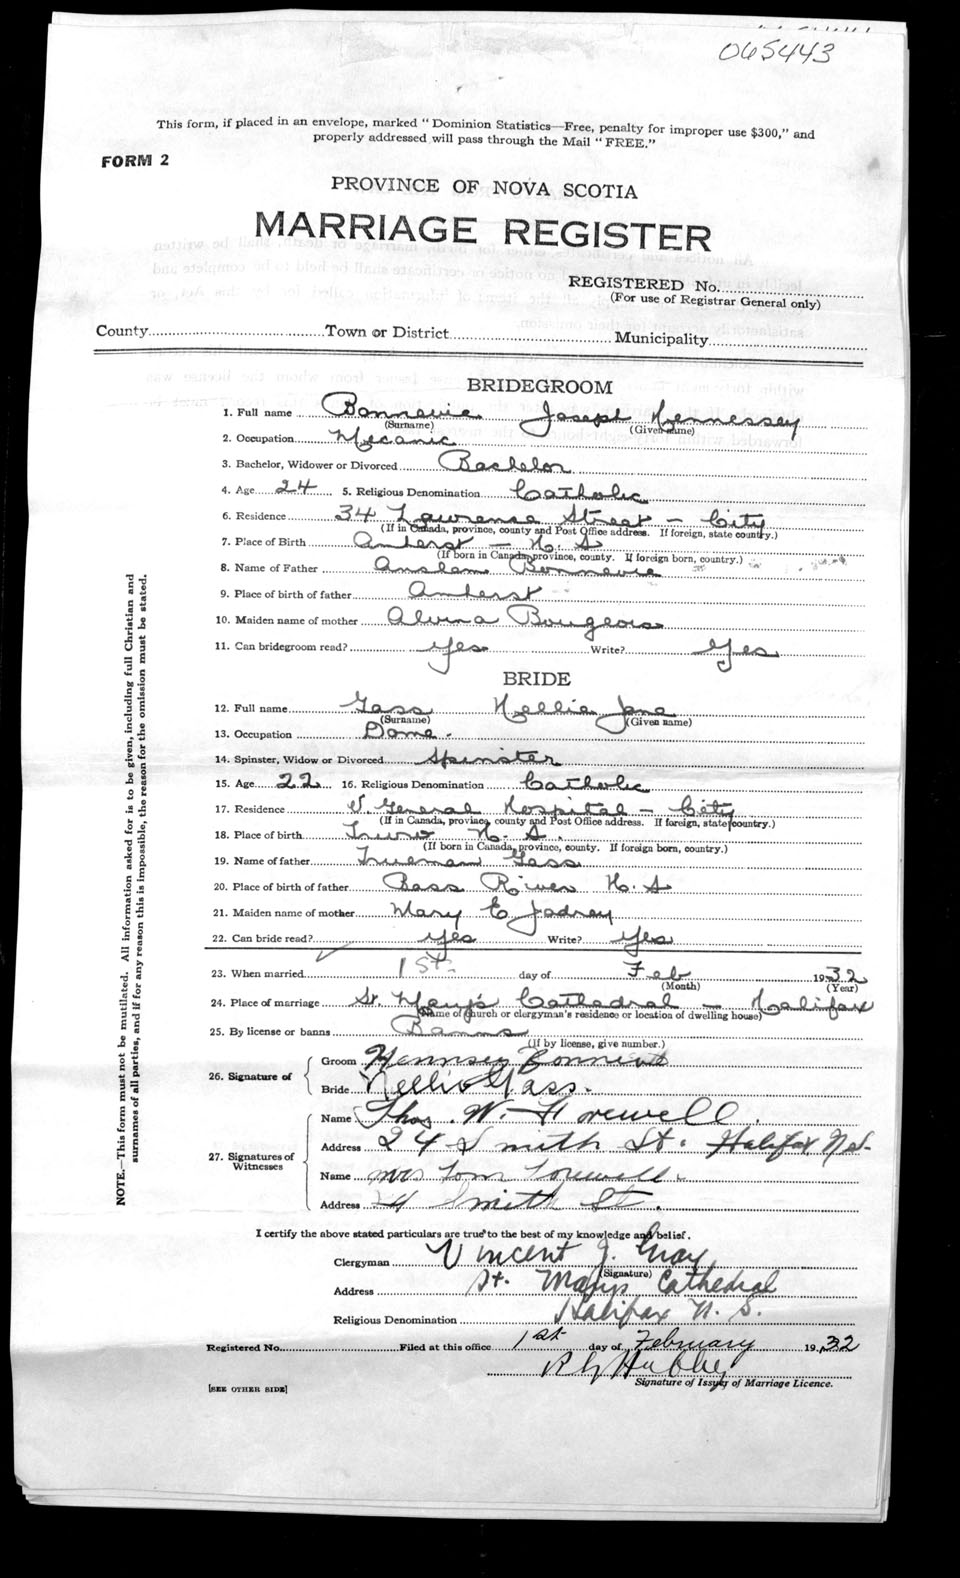 065443
This form, if placed in an envelope, marked "Dominion Statistics—Free, penalty for improper use $300," and
properly addressed will pass through the Mail "FREE."
FORM 2
PROVINCE OF NOVA SCOTIA
MARRIAGE REGISTER
REGISTERED No.
(For use of Registrar General only)
County Town or District Municipality
BRIDEGROOM
1. Full name Bonnevie Joseph Hennessey
(Surname) (Given name)
2. Occupation Mecanic
3. Bachelor, Widower or Divorced Bachelor
4. Age 24 5. Religious Denomination Catholic
6. Residence 34 Lawrence Street – City
(If in Canada, province, county and Post Office address. If foreign, state country.)
7. Place of Birth Amherst – N. S
(If born in Canada, province, county. If foreign born, country.)
8. Name of Father Anslem Bonnevie
9. Place of birth of father Amherst
10. Maiden name of mother Alvina Bourgeois
11. Can bridegroom read? Yes Write? Yes
BRIDE
12. Full name Gass Nellie Jane
(Surname) (Given name)
13. Occupation Dome.
14. Spinster, Widow or Divorced Spinster
15. Age 22 16. Religious Denomination Catholic
17. Residence V. General Hospital – City
(If in Canada, province, county and Post Office address. If foreign, state country.)
18. Place of birth Truro N. S.
(If born in Canada, province, county. If foreign born, country.)
19. Name of father Trueman Gass
20. Place of birth of father Bass River N. S
21. Maiden name of mother Mary E Jadrey
22. Can bride read? Yes Write? Yes
23. When married 1st. day of Feb 1932
(Month) (Year)
24. Place of marriage St. Mary's Cathedral – Halifax
(Name of church or clergyman's residence or location of dwelling house)
25. By license or banns Banns
(If by license, give number.)
26. Signature of Groom Hennsey Bonnevie
Bride Nellie Gass.
27. Signatures of Witnesses Name Thos. W. Forewell.
Address 24 Smith St. Halifax N.S.
Name Mrs Tom Forewell.
Address 24 Smith St.
I certify the above stated particulars are true to the best of my knowledge and belief.
Clergyman Vincent J. Gray
(Signature)
Address St. Marys Cathedral
Halifax N. S.
Religious Denomination
Registered No. Filed at this office 1st day of February 1932
Signature of Issuer of Marriage Licence.
[SEE OTHER SIDE]
NOTE.—This form must not be mutilated. All information asked for is to be given, including full Christian and
surnames of all parties, and if for any reason this is impossible, the reason for the omission must be stated.